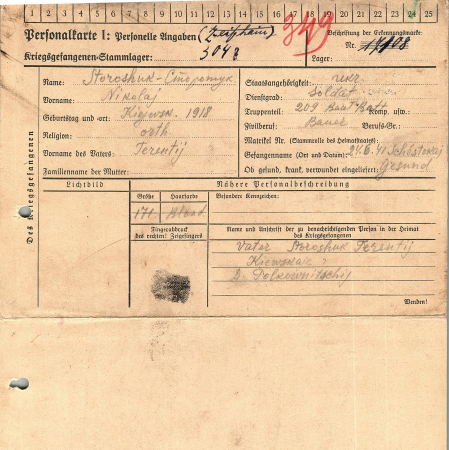 1 2 3 4 5 6 7 8 9 10 11 12 13 14 15 16 17 18 19 20 21 22 23 24 25
Personalkarte I: Personelle Angaben
349
Beschriftung der Erkennungsmarke
Nr.
Kriegsgefangenen-Stammlager: 3048
Lager:
Des Kriegsgefangenen
Name: Storoshuk-Сторотук
Vorname: Nikolaj
Geburtstag und -ort: Kiewsk. 1918
Religion: orth
Vorname des Vaters: Terentij
Familienname der Mutter:
Staatsangehörigkeit: ukr
Dienstgrad: Soldat
Truppenteil: 209 Baut Batt Komp. usw.:
Zivilberuf: Bauer Berufs-Gr.:
Matrikel Nr. (Stammrolle des Heimatstaates):
Gefangennahme (Ort und Datum): 24.6.41
Ob gesund, krank, verwundet eingeliefert: Gesund
Lichtbild
Größe
Haarfarbe
171
Blond
Fingerabdruck
des rechten! Zeigefingers
Nähere Personalbeschreibung
Besondere Kennzeichen:
Name und Anschrift der zu benachrichtigenden Person in der Heimat
des Kriegsgefangenen
Vater Storoshuk Terentij
Wenden!